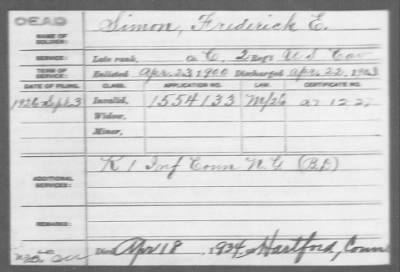 DEAD
NAME OF SOLDIER: Simon, Frederick E.
SERVICE: Late rank, Co. C, 2 Reg't U S Cav
TERM OF SERVICE: Enlisted Apr. 23, 1900 Discharged Apr. 22, 1903
DATE OF FILING. CLASS. APPLICATION NO. LAW. CERTIFICATE NO.
1926 Sept 3 Invalid, 1554133
Widow,
Minor,
ADDITIONAL SERVICES: K 1 Inf Conn N.G.
REMARKS:
Died Apr 18, 1934, Hartford, Conn